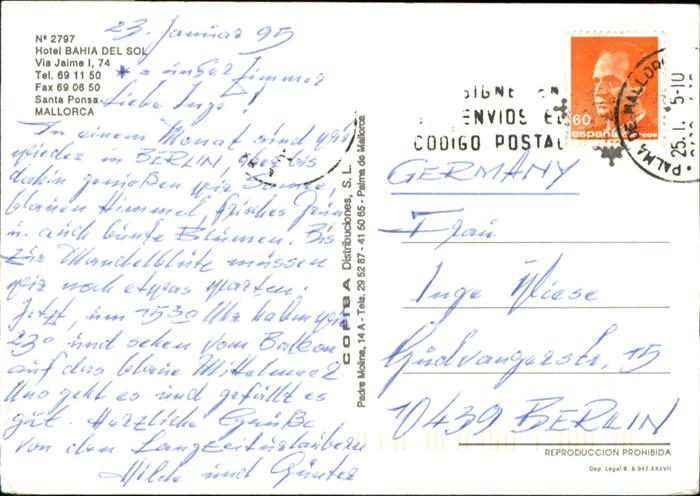 23. Januar 95
Nº 2797
Hotel BAHIA DEL SOL
Via Jaime I, 74
Tel. 69 11 50
Fax 69 06 50
Santa Ponsa
MALLORCA
* = unser Zimmer
Liebe Inge!
In einem Monat sind wir
wieder in BERLIN, aber bis
dahin genießen wir Sonne,
blauen Himmel, frisches Grün
u. auch bunte Blumen. Bis
zur Mandelblüte müssen
wir noch etwas warten.
Jetzt um 1530 Uhr haben wir
23° und sehen vom Balkon
auf das blaue Mittelmeer
Uns geht es und gefällt es
gut. Herzliche Grüße
von den Langzeiturlaubern
Hilde und Günter
COPIBA Distribuciones, S. L.
Padre Molina, 14 A - Tels. 29 52 87 - 41 50 65 - Palma de Mallorca
SIGNE EN
ENVIOS EL
CODIGO POSTAL
60
españa correos
PALMA DE MALLORCA
25. 1. 5-10
GERMANY
Frau
Inge Wiese
Gudvangerstr. 15
10439 BERLIN
REPRODUCCION PROHIBIDA
Dep. Legal B. 6.947-XXXVII